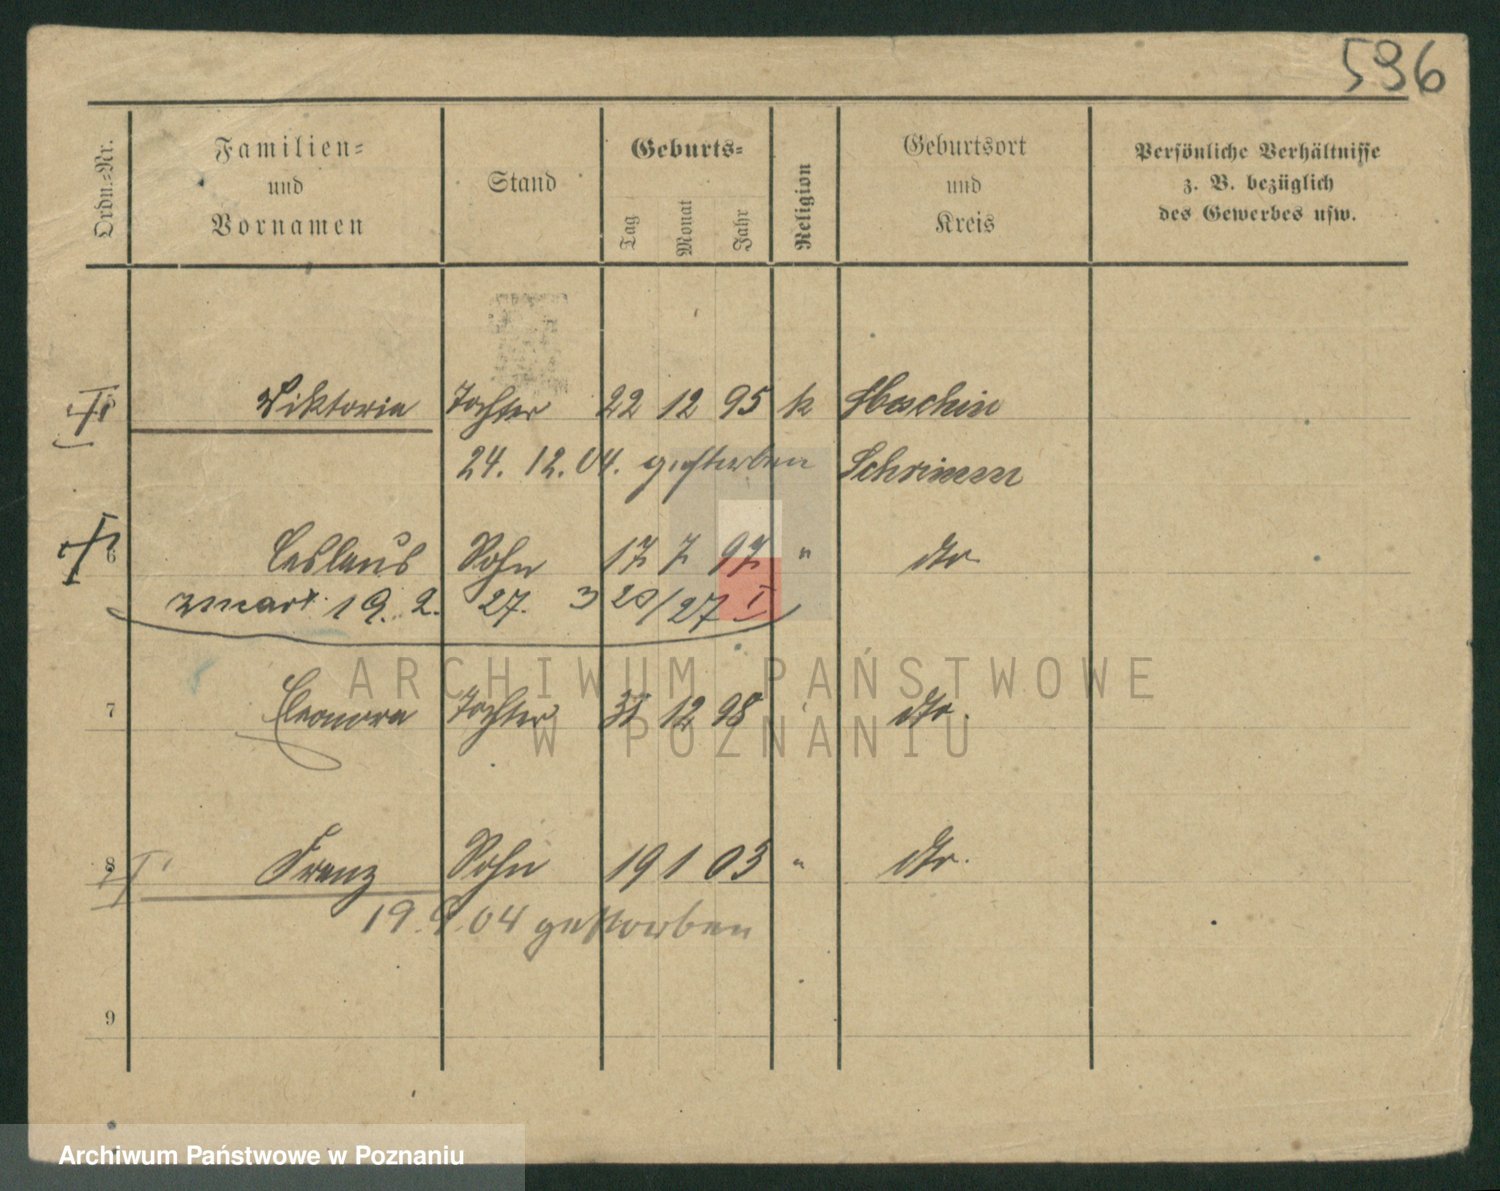 596
Ordn.-Nr.
Familien-
und
Vornamen
Stand
Geburts-
Tag
Monat
Jahr
Religion
Geburtsort
und
Kreis
Persönliche Verhältnisse
z. B. bezüglich
des Gewerbes usw.
Viktoria Tochter 22 12 95 k
24. 12. 04. gestorben Schrimm
6 Ceslaus Sohn 17 7 97 " dto
zmarł 19. 2. 27. 3 20/27 I
7 Eleonora Tochter 31 12 98 dto.
8 Franz Sohn 19 1 03 " dto.
04 gestorben
9
ARCHIWUM PAŃSTWOWE
W POZNANIU
Archiwum Państwowe w Poznaniu